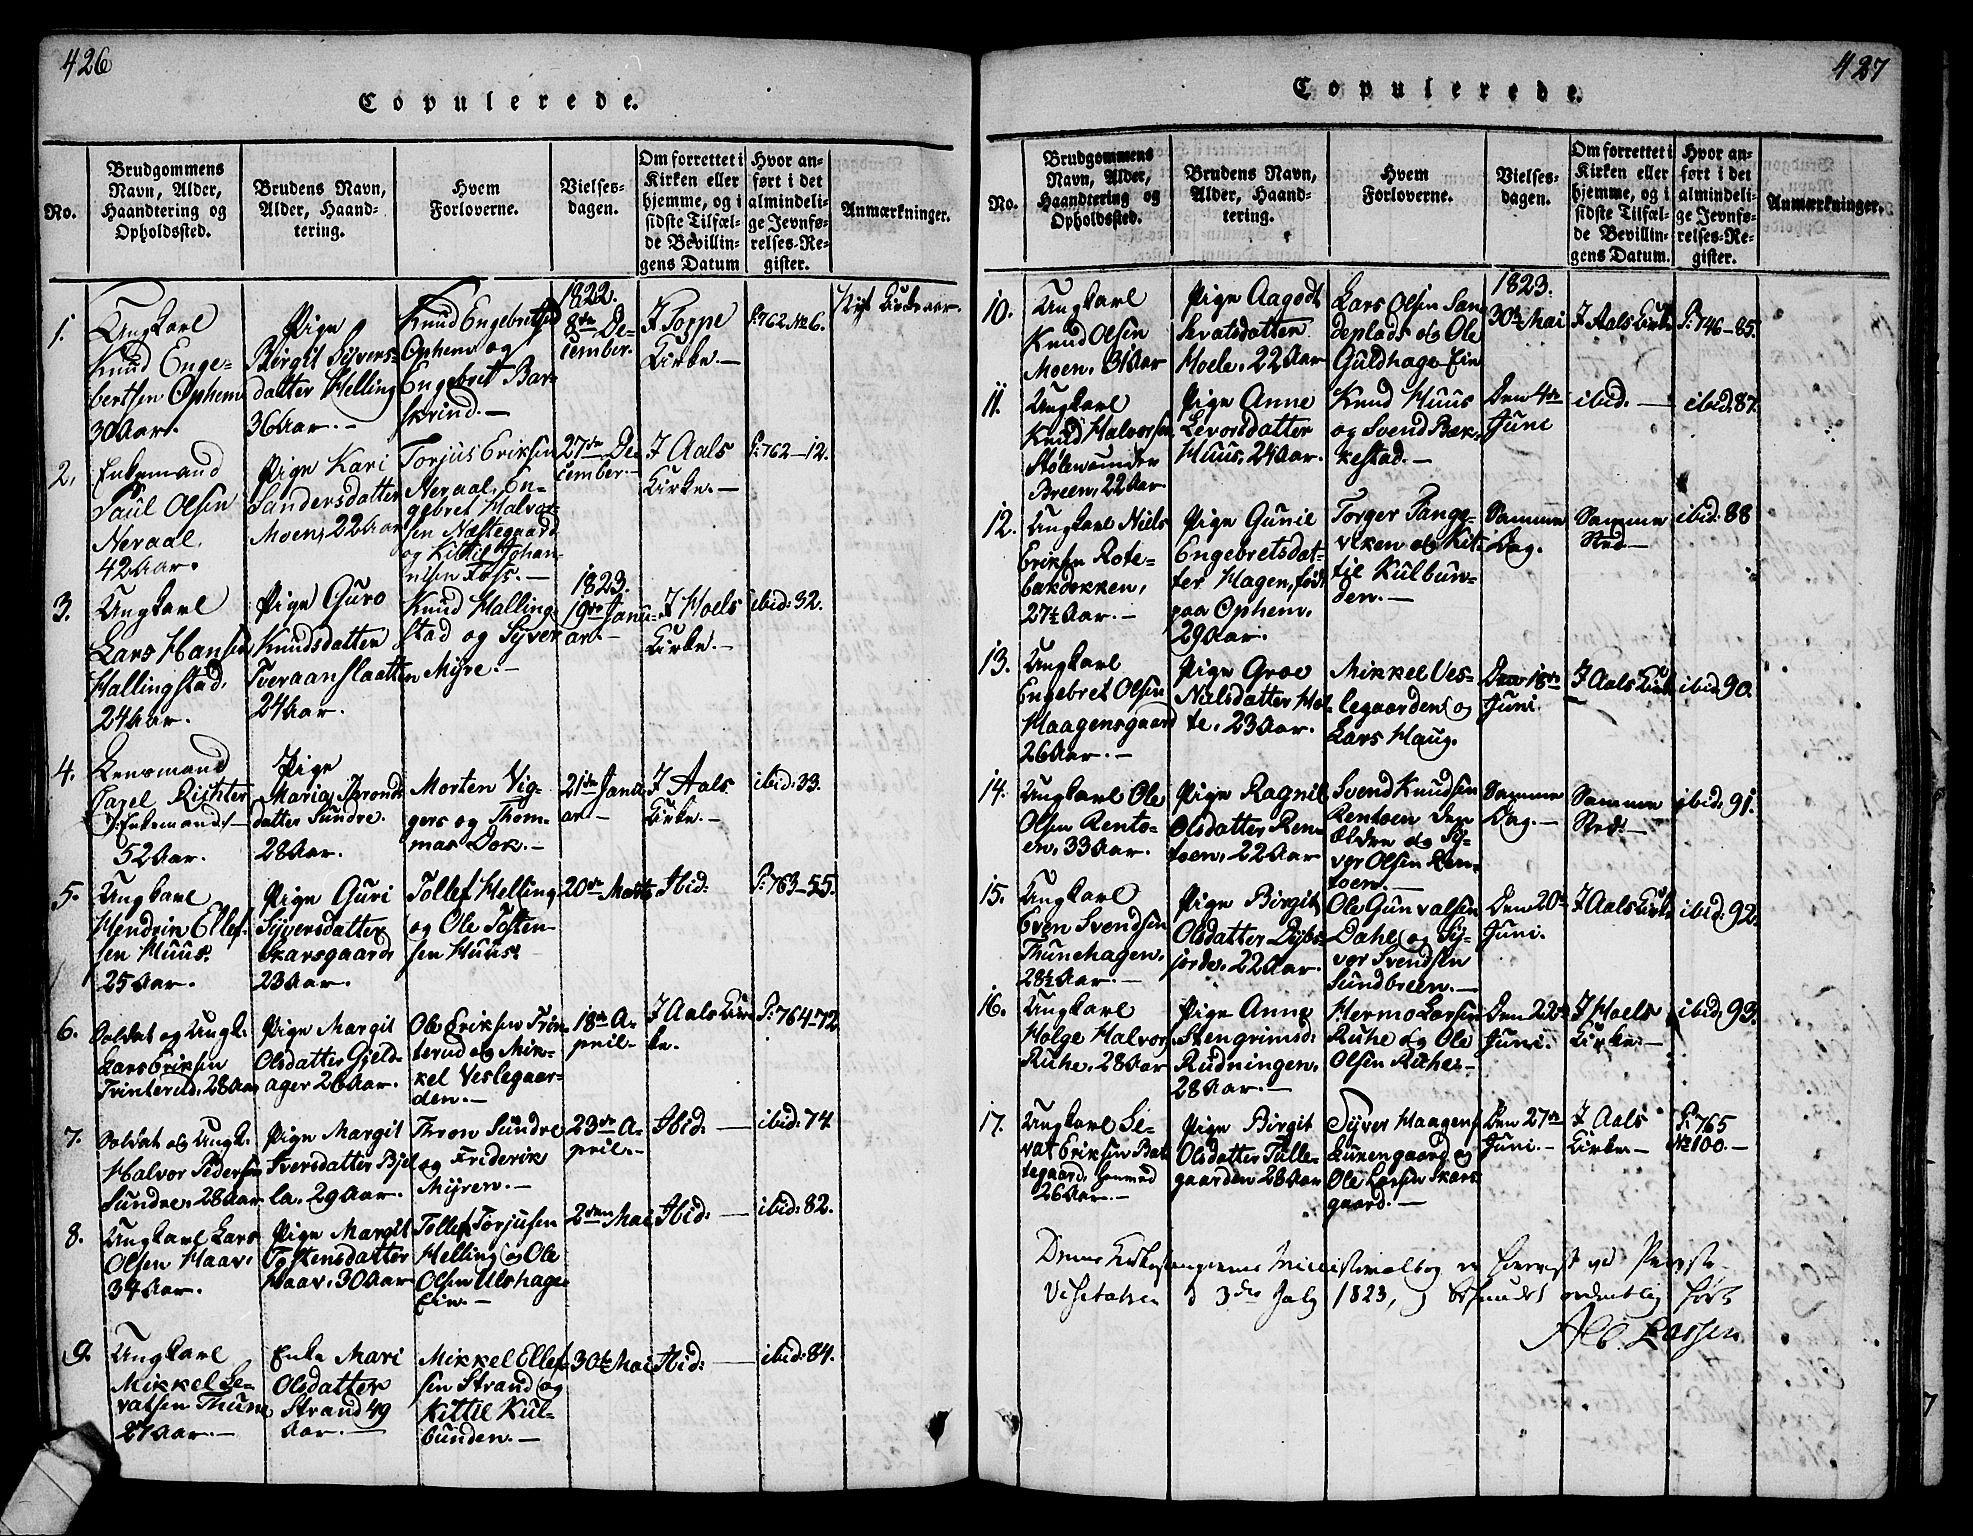 426
Copulerede.
No.
Brudgommens
Navn, Alder,
Haandtering og
Opholdssted.
Brudens Navn,
Alder, Haand-
tering.
Hvem
Forloverne.
Vielses-
dagen.
Om forrettet i
Kirken eller
hjemme, og i
sidste Tilfæl-
de Bevillin-
gens Datum
Hvor an-
ført i det
almindeli-
ge Jevnfø-
relses-Re-
gister.
Anmærkninger.
1.
Ungkarl
Knud Enge-
bertsen Ophem
30 Aar.
Pige
Birgit Syvers-
datter Helling
36 Aar. -
Knud Engebretsen
Ophem og
Engebret Bar-
skrind. -
1822.
8de De-
cember.
I Torpe
Kirke. -
P: 762 No 6.
Nyt Kirkeaar.
2.
Enkemand
Paul Olsen
Neraal,
42 Aar.
Pige Kari
Sandersdatter
Moen, 22 Aar
Torjus Eriksen
Neraal, En-
gebret Halvor-
sen Næstegaard
og Kittil Johan-
nesen Foss. -
27de De-
cember. -
I Aals
Kirke. -
P: 762 - 12.
3.
Ungkarl
Lars Hansen
Hallingstad,
24 Aar.
Pige Guro
Knudsdatter
Tveraanslaatten
24 Aar.
Knud Halling-
stad og Syver
Myre. -
1823.
19de Janu-
ar. -
I Hoels
Kirke. -
ibid: 32.
4.
Lensmand
Carel Richter
/: Enkemand :/ -
52 Aar.
Pige
Maria Thronds
datter Sundre.
28 Aar.
Morten Vig-
gers og Thom-
mas Dok. -
21de Janu-
ar -
I Aals
Kirke. -
ibid: 33.
5.
Ungkarl
Hendrin Ellef-
sen Huus.
25 Aar.
Pige Guri
Syversdatter
Skarsgaard
23 Aar.
Tollef Helling
og Ole Tosten-
sen Huus.
20de Marts
Ibid:
P: 763 - 55.
6.
Soldat og Ungk.
Lars Eriksen
Trinterud, 28 Aar
Pige Margit
Olsdatter Gjeld-
ager 26 Aar.
Ole Eriksen Trin-
terud og Mik-
kel Veslegaar-
den. -
18de A-
pril -
I Aals Kir-
ke.
P: 764 - 72
7.
Soldat og Ungk.
Halvor Pedersen
Sundre, 28 Aar
Pige Margit
Iversdatter Bjel
la, 29 Aar.
Thron Sundre
og Friderik
Myren. -
23de A-
pril. -
Ibid: -
ibid: 74
8.
Ungkarl Lars
Olsen Haav.
34 Aar.
Pige Margit
Tostensdatter
Haav, 30 Aar
Tollef Torjusen
Helling og Ole
Olsen Ulshagen
Ein. -
2den Mai
Ibid: -
ibid: 82.
9.
Ungkarl
Mikkel Se-
vatsen Thune
27 Aar. -
Enke Mari
Olsdatter
Strand 49
Aar. -
Mikkel Ellef-
sen Strand og
Kittil Kul-
bunden. -
30te Mai
Ibid: -
ibid: 84.
427
Copulerede.
No.
Brudgommens
Navn, Alder,
Haandtering og
Opholdssted.
Brudens Navn,
Alder, Haand-
tering.
Hvem
Forloverne.
Vielses-
dagen.
Om forrettet i
Kirken eller
hjemme, og i
sidste Tilfæl-
de Bevillin-
gens Datum.
Hvor an-
ført i det
almindeli-
ge Jevnfø-
relses-Re-
gister.
Anmærkninger.
10.
Ungkarl
Knud Olsen
Moen, 31 Aar
Pige Aagodt
Sevatsdatter
Hoele, 22 Aar
Lars Olsen San-
deplads og Ole
Guldhage Ein
1823.
30te Mai
I Aals Kirke
P: 746 - 85.
11.
Ungkarl
Knud Halvorsen
Stølen under
Breen, 22 Aar
Pige Anne
Levorsdatter
Huus, 24 Aar.
Knud Huus
og Svend Bæk-
kestad. -
Den 4de
Juni
ibid. -
ibid: 87.
12.
Ungkarl Niels
Eriksen Rote-
bakdokken,
27½ Aar. -
Pige Gunil
Engebretsdat-
ter Hagen, fød
paa Ophem,
29 Aar.
Torger Tange-
viken og Kit-
til Kulbun-
den. -
Samme
Dag.
Samme
Sted -
ibid: 88
13.
Ungkarl
Engebret Olsen
Haagensgaard
26 Aar. -
Pige Groe
Nielsdatter Hol-
te, 23 Aar.
Mikkel Ves-
legaarden og
Lars Haug.
Den 18de
Juni.
I Aals Kirke
ibid: 90.
14.
Ungkarl Ole
Olsen Rento-
en, 33 Aar.
Pige Ragnil
Olsdatter Ren-
toen, 22 Aar
Svend Knudsen
Rentoen den
Ældre og Sy-
ver Olsen Ren-
toen. -
Samme
Dag. -
Samme
Sted. -
ibid: 91.
15.
Ungkarl
Even Svendsen
Thunehagen,
28½ Aar. -
Pige Birgit
Olsdatter Dybs-
jorde, 22 Aar.
Ole Gunvalsen
Dahle og Sy-
ver Svendsen
Sundbreen. -
Den 20de
Juni.
I Aals Kirke
ibid: 92.
16.
Ungkarl
Holge Halvors
Ruhe, 28 Aar
Pige Anne
Stengrimsd:
Rudningen,
28 Aar. -
Hermo Larsen
Ruhe og Ole
Olsen Ruhe. -
Den 22de
Juni. -
I Hoels
Kirke. -
ibid: 93.
17.
Ungkarl Se-
vat Eriksen Bat-
tegaard,
26 Aar. -
Pige Birgit
Olsdatter Tulle-
gaarden 28 Aar
Syver Haagens
Lurengaard og
Ole Larsen Skars-
gaard. -
Den 27de
Juni. -
I Aals
Kirke. -
P: 765
No 100. -
Denne Ministerialbog er foreviist ved Provste-
Visitatsen d 3die July 1823, og befundet ordentlig ført
Alb. Lassen